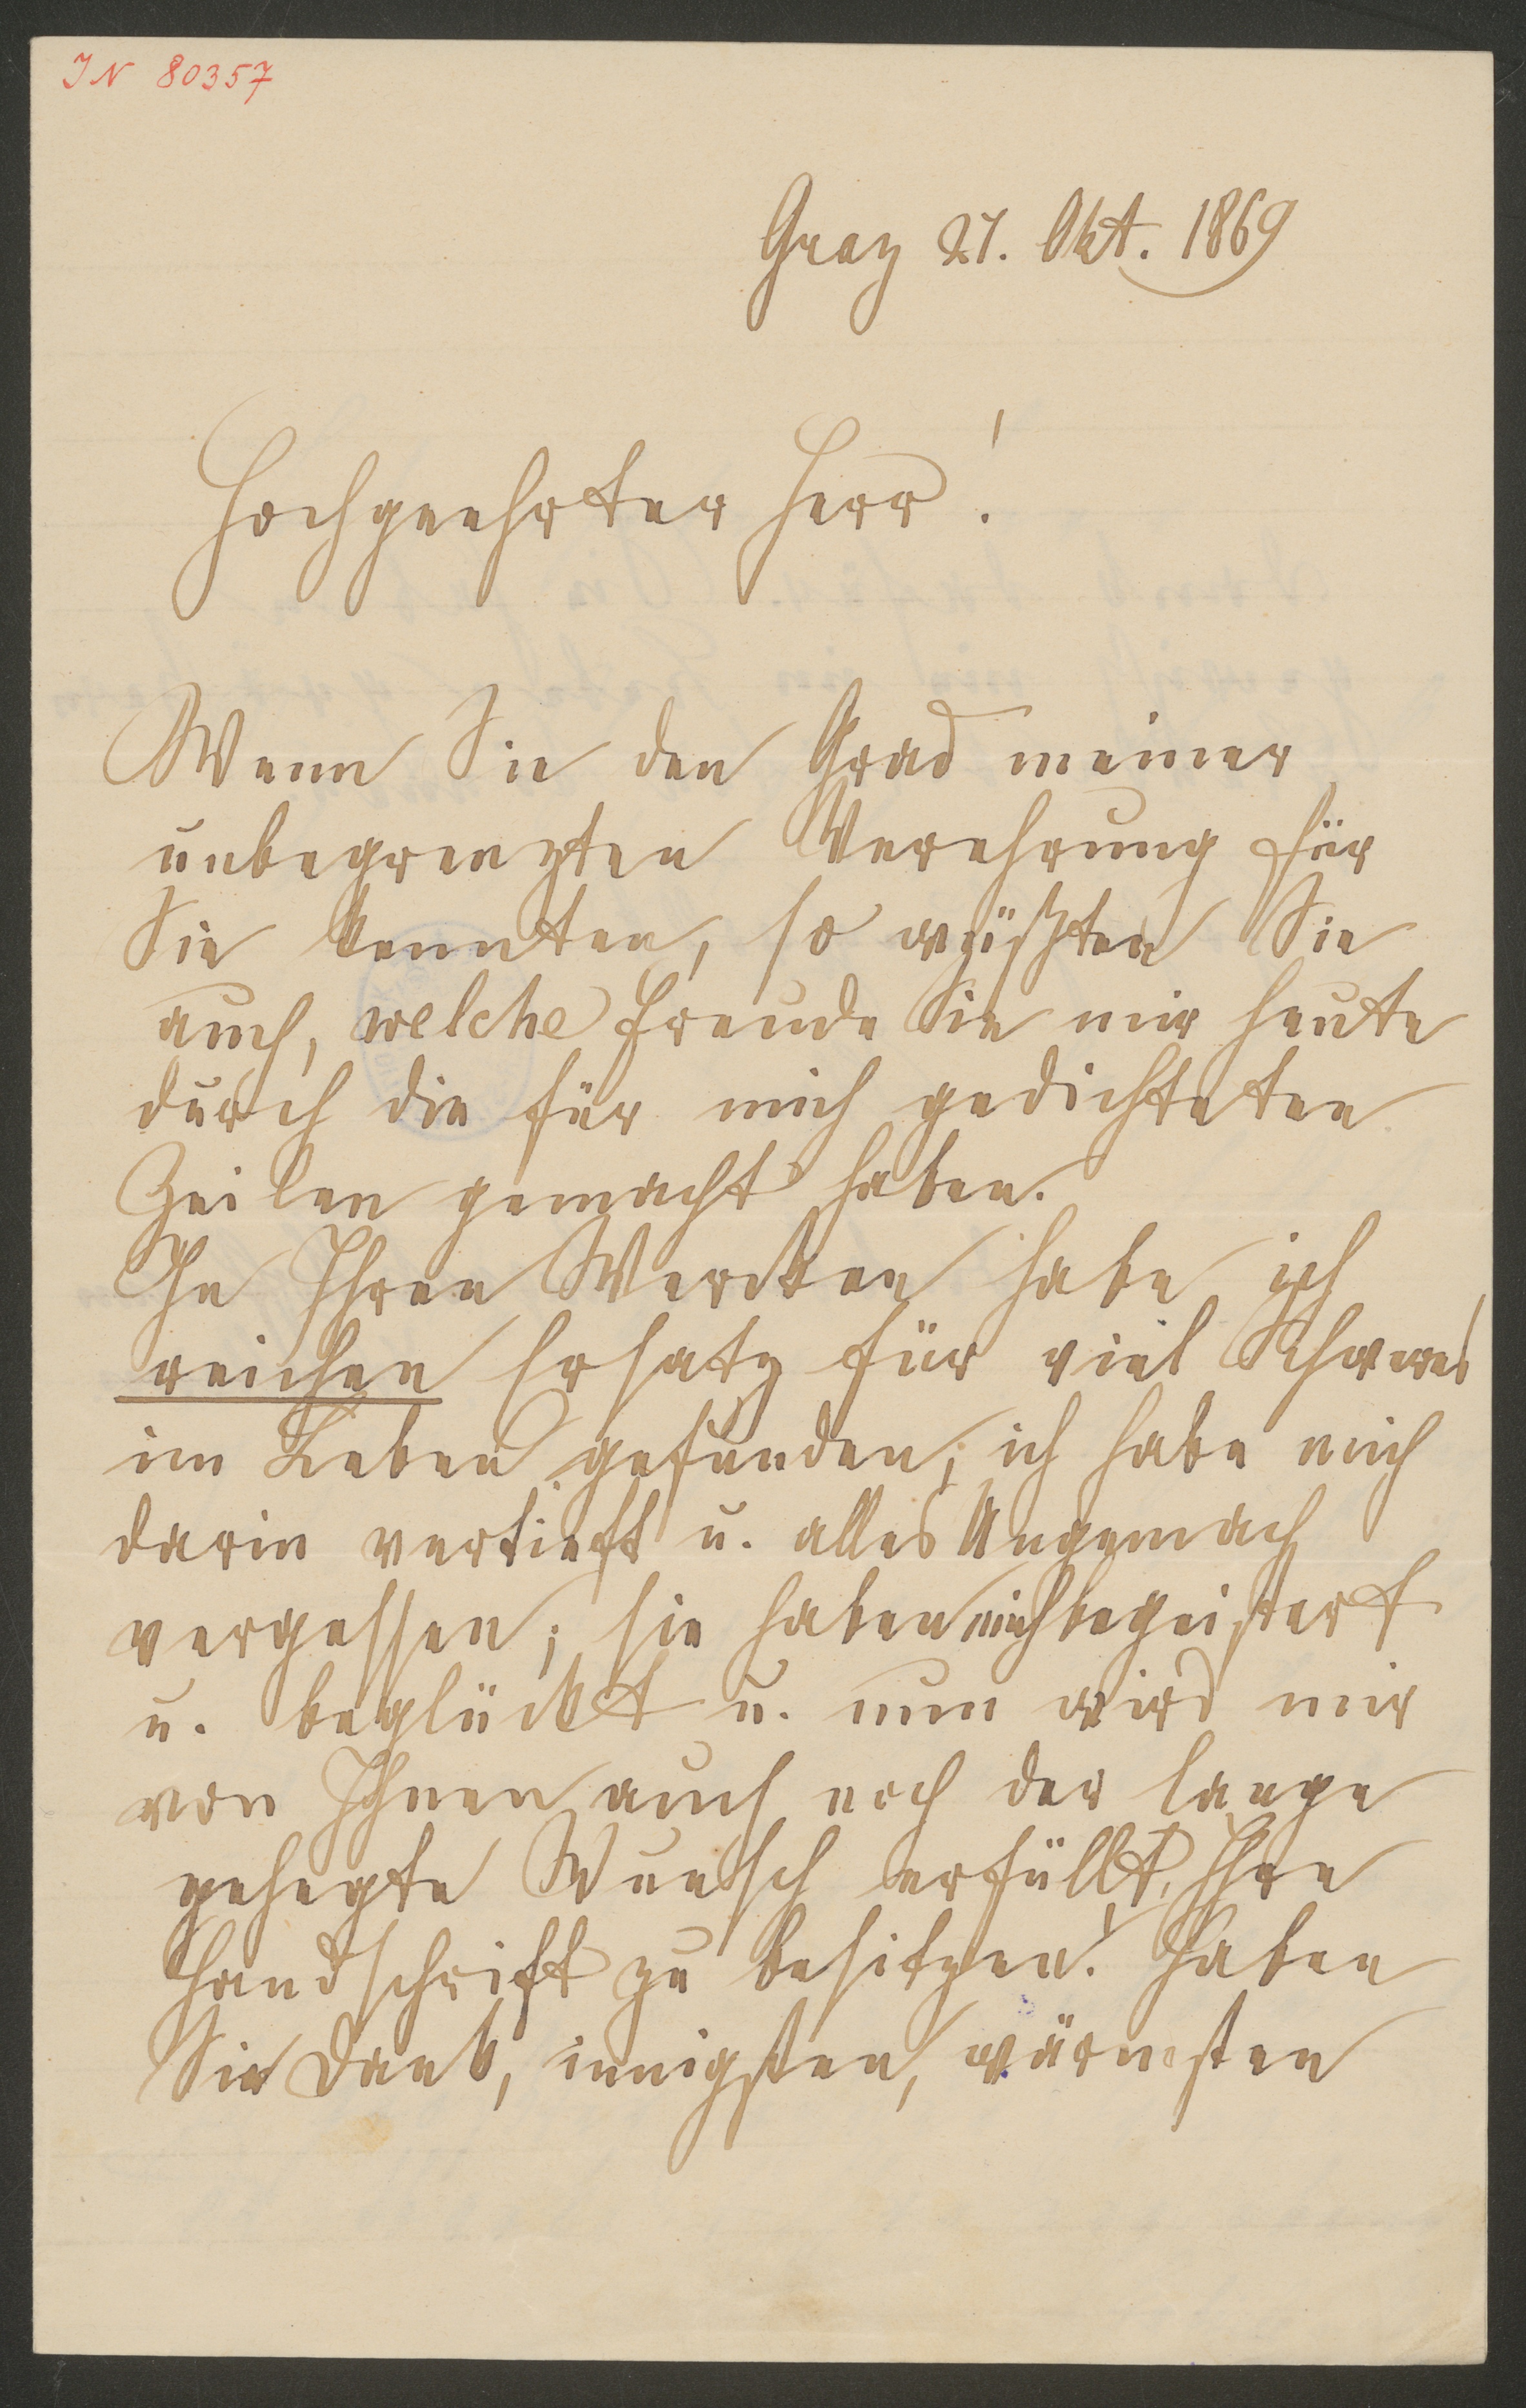 IN 80357
Graz 27. Okt. 1869
Hochgeehrter Herr!
Wenn Sie den Grad meiner
unbegrenzten Verehrung für
Sie kennten, so wüßten Sie
auch, welche Freude Sie mir heute
durch die für mich gedichteten
Zeilen gemacht haben.
In Ihren Wercken habe ich
reichen Ersatz für viel Schweres
im Leben gefunden; ich habe mich
darin vertieft u. alles Ungemach
vergessen; sie haben mich begeistert
u. beglückt u. nun wird mir
von Ihnen auch noch der lange
gehegte Wunsch erfüllt, Ihre
Handschrift zu besitzen! Haben
Sie Dank, innigsten, wärmsten